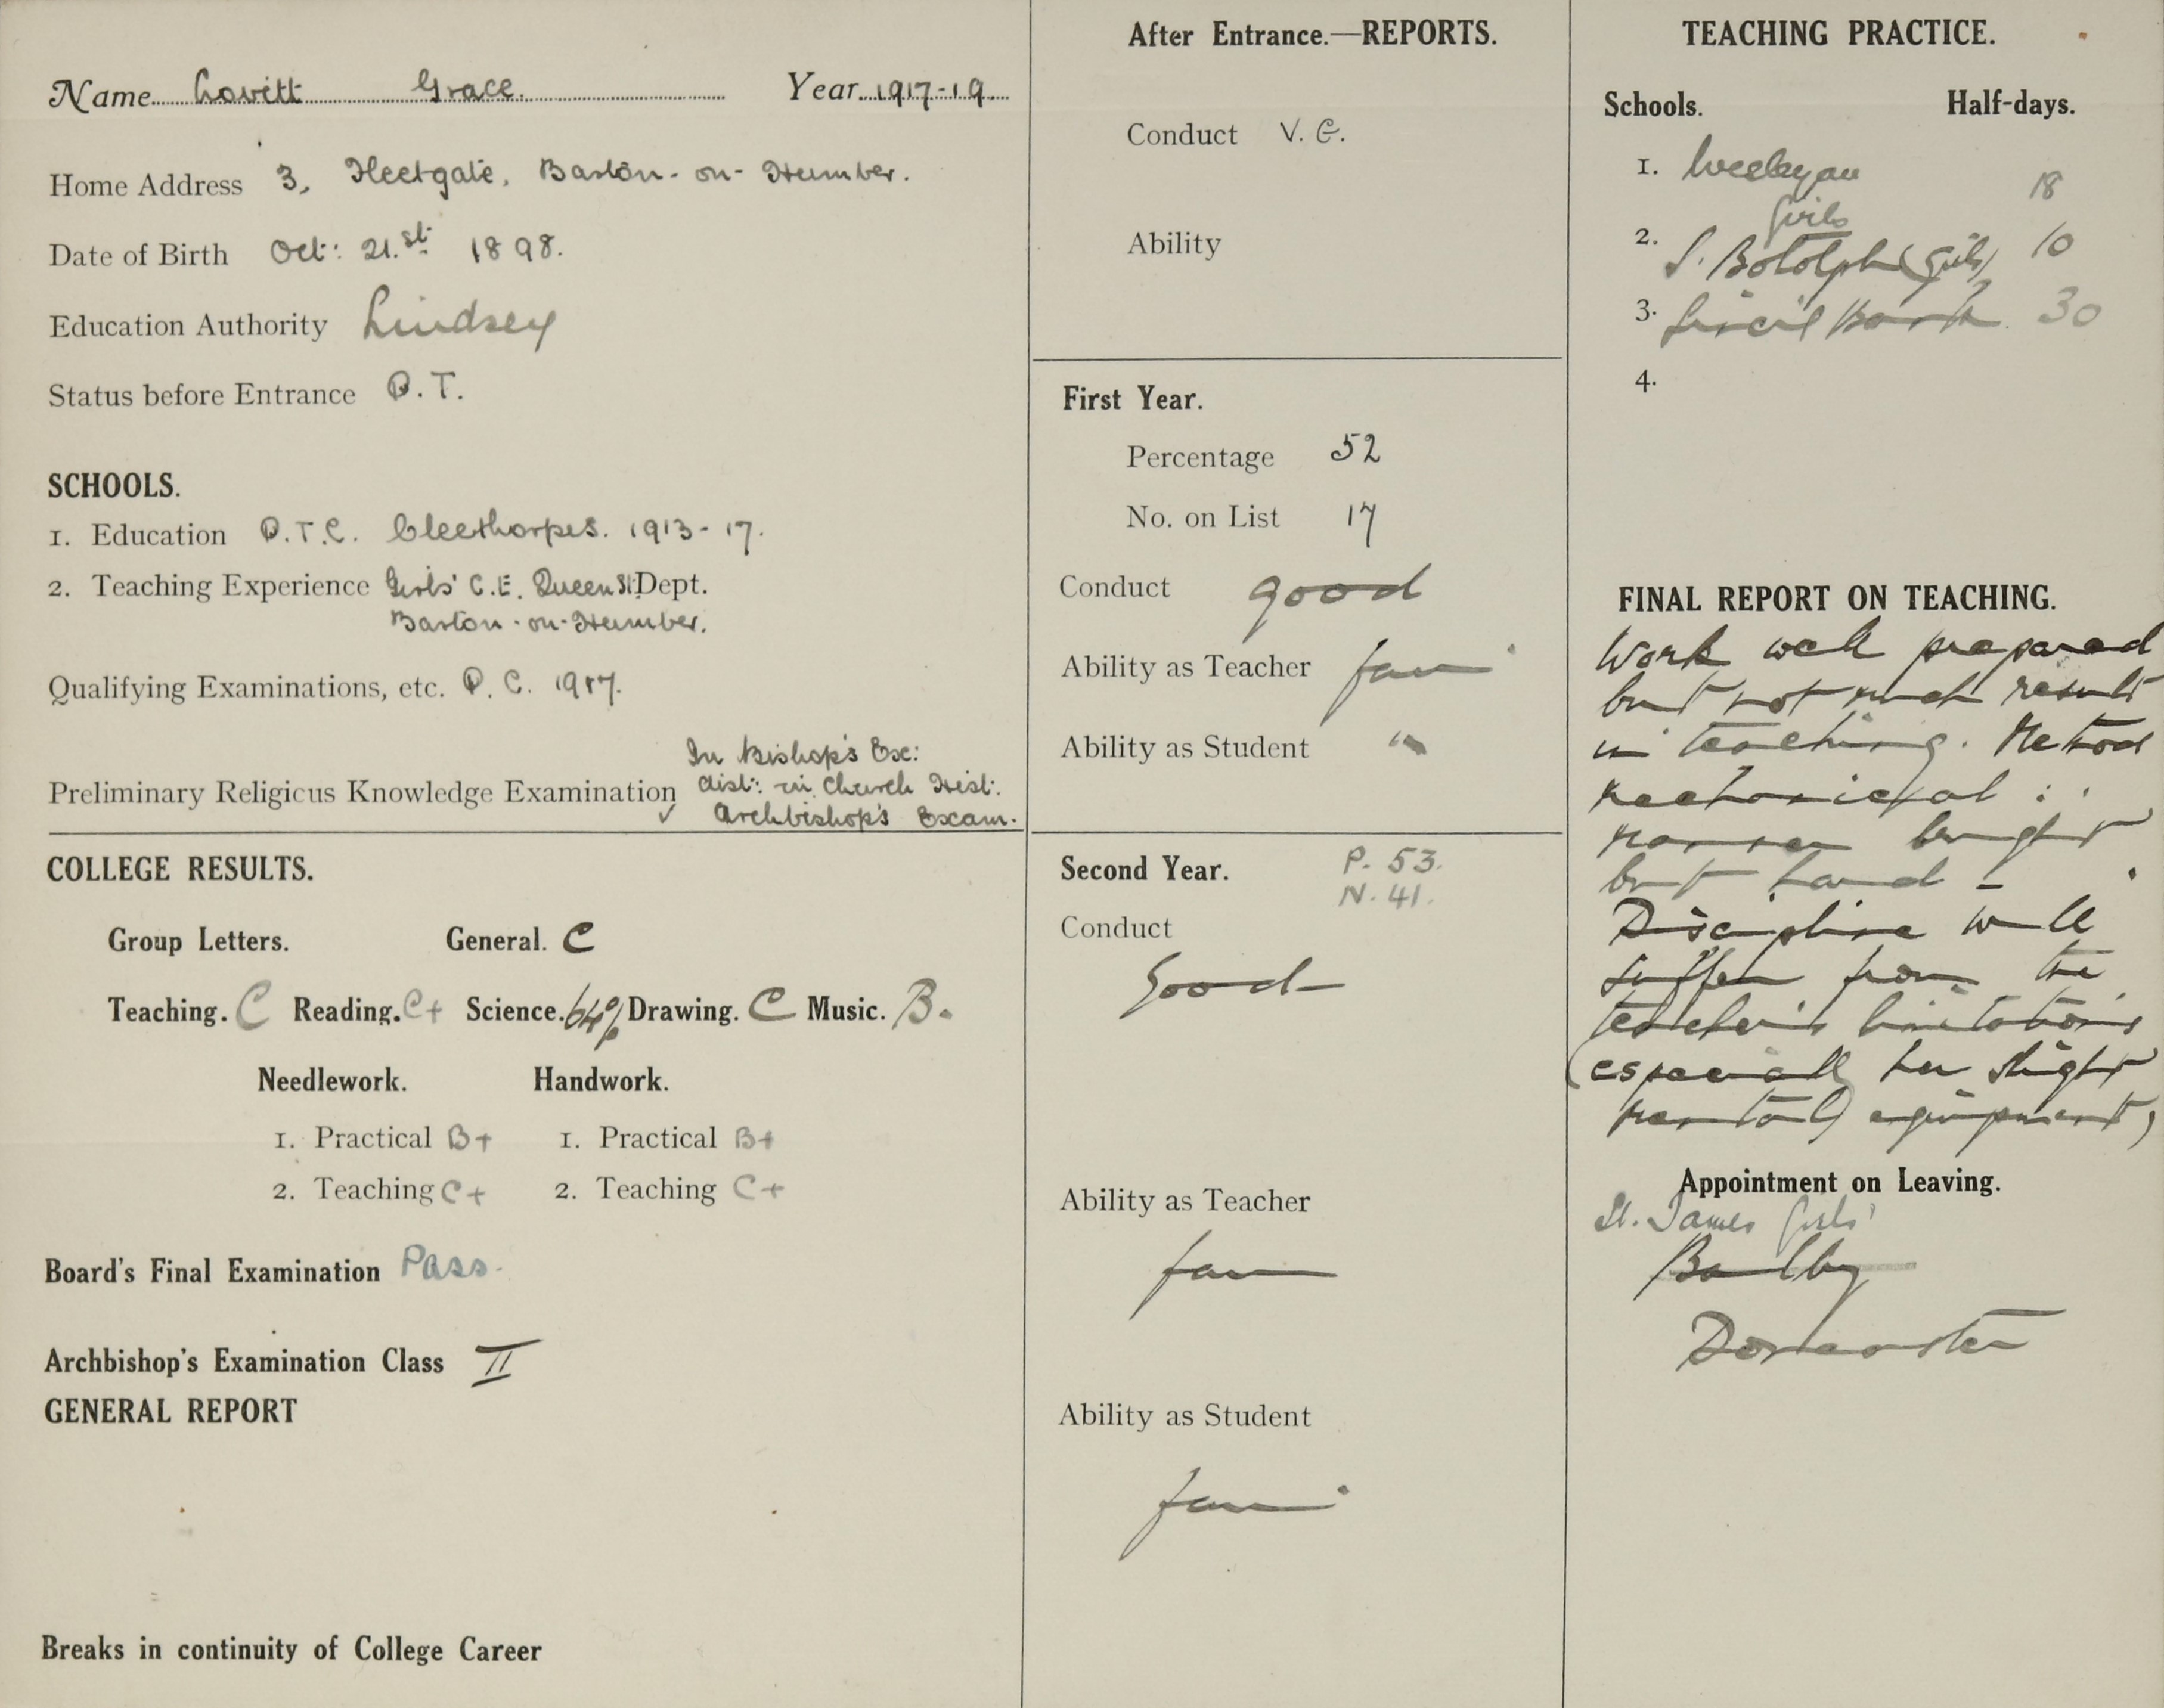 Name Lovitt Grace. Year 1917-19.
Home Address 3, Fleetgate, Barton-on-Humber.
Date of Birth Oct: 21.st 1898.
Education Authority Lindsey
Status before Entrance P.T.
SCHOOLS.
1. Education P.T.C. Cleethorpes. 1913-17.
2. Teaching Experience Girls' C.E. Queen St Dept.
Barton-on-Humber.
Qualifying Examinations, etc. P.C. 1917.
In Bishop's Ex:
Preliminary Religious Knowledge Examination dist: in Church Hist:
✓ Archbishop's Exam.
COLLEGE RESULTS.
Group Letters. General. C
Teaching. C Reading. C+ Science. 64% Drawing. C Music. B.
Needlework. Handwork.
1. Practical B+ 1. Practical B+
2. Teaching C+ 2. Teaching C+
Board's Final Examination Pass.
Archbishop's Examination Class II
GENERAL REPORT
Breaks in continuity of College Career
After Entrance.—REPORTS.
Conduct V.G.
Ability
First Year.
Percentage 52
No. on List 17
Conduct good
Ability as Teacher fair
Ability as Student "
Second Year. P. 53.
N. 41.
Conduct
Good
Ability as Teacher
fair
Ability as Student
fair
TEACHING PRACTICE.
Schools. Half-days.
1. Wesleyan 18
Girls
2. S. Botolph (Girls) 10
3. Sincil Bank 30
4.
FINAL REPORT ON TEACHING.
Work well prepared
but not much result
in teaching. Method
mechanical:
manner bright
but hard -
Discipline will
suffer from the
teacher's limitations
(especially her slight
mental equipment)
Appointment on Leaving.
St. James Girls'
Balby
Doncaster